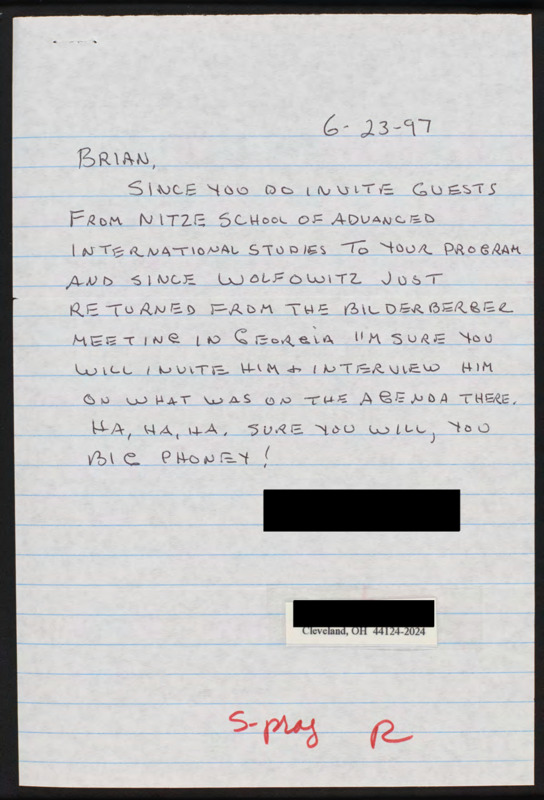 6-23-97
BRIAN,
SINCE YOU DO INVITE GUESTS
FROM NITZE SCHOOL OF ADVANCED
INTERNATIONAL STUDIES TO YOUR PROGRAM
AND SINCE WOLFOWITZ JUST
RETURNED FROM THE BILDERBERBER
MEETING IN GEORGIA I'M SURE YOU
WILL INVITE HIM + INTERVIEW HIM
ON WHAT WAS ON THE AGENDA THERE.
HA, HA, HA. SURE YOU WILL, YOU
BIG PHONEY!
Cleveland, OH 44124-2024
S-prog R